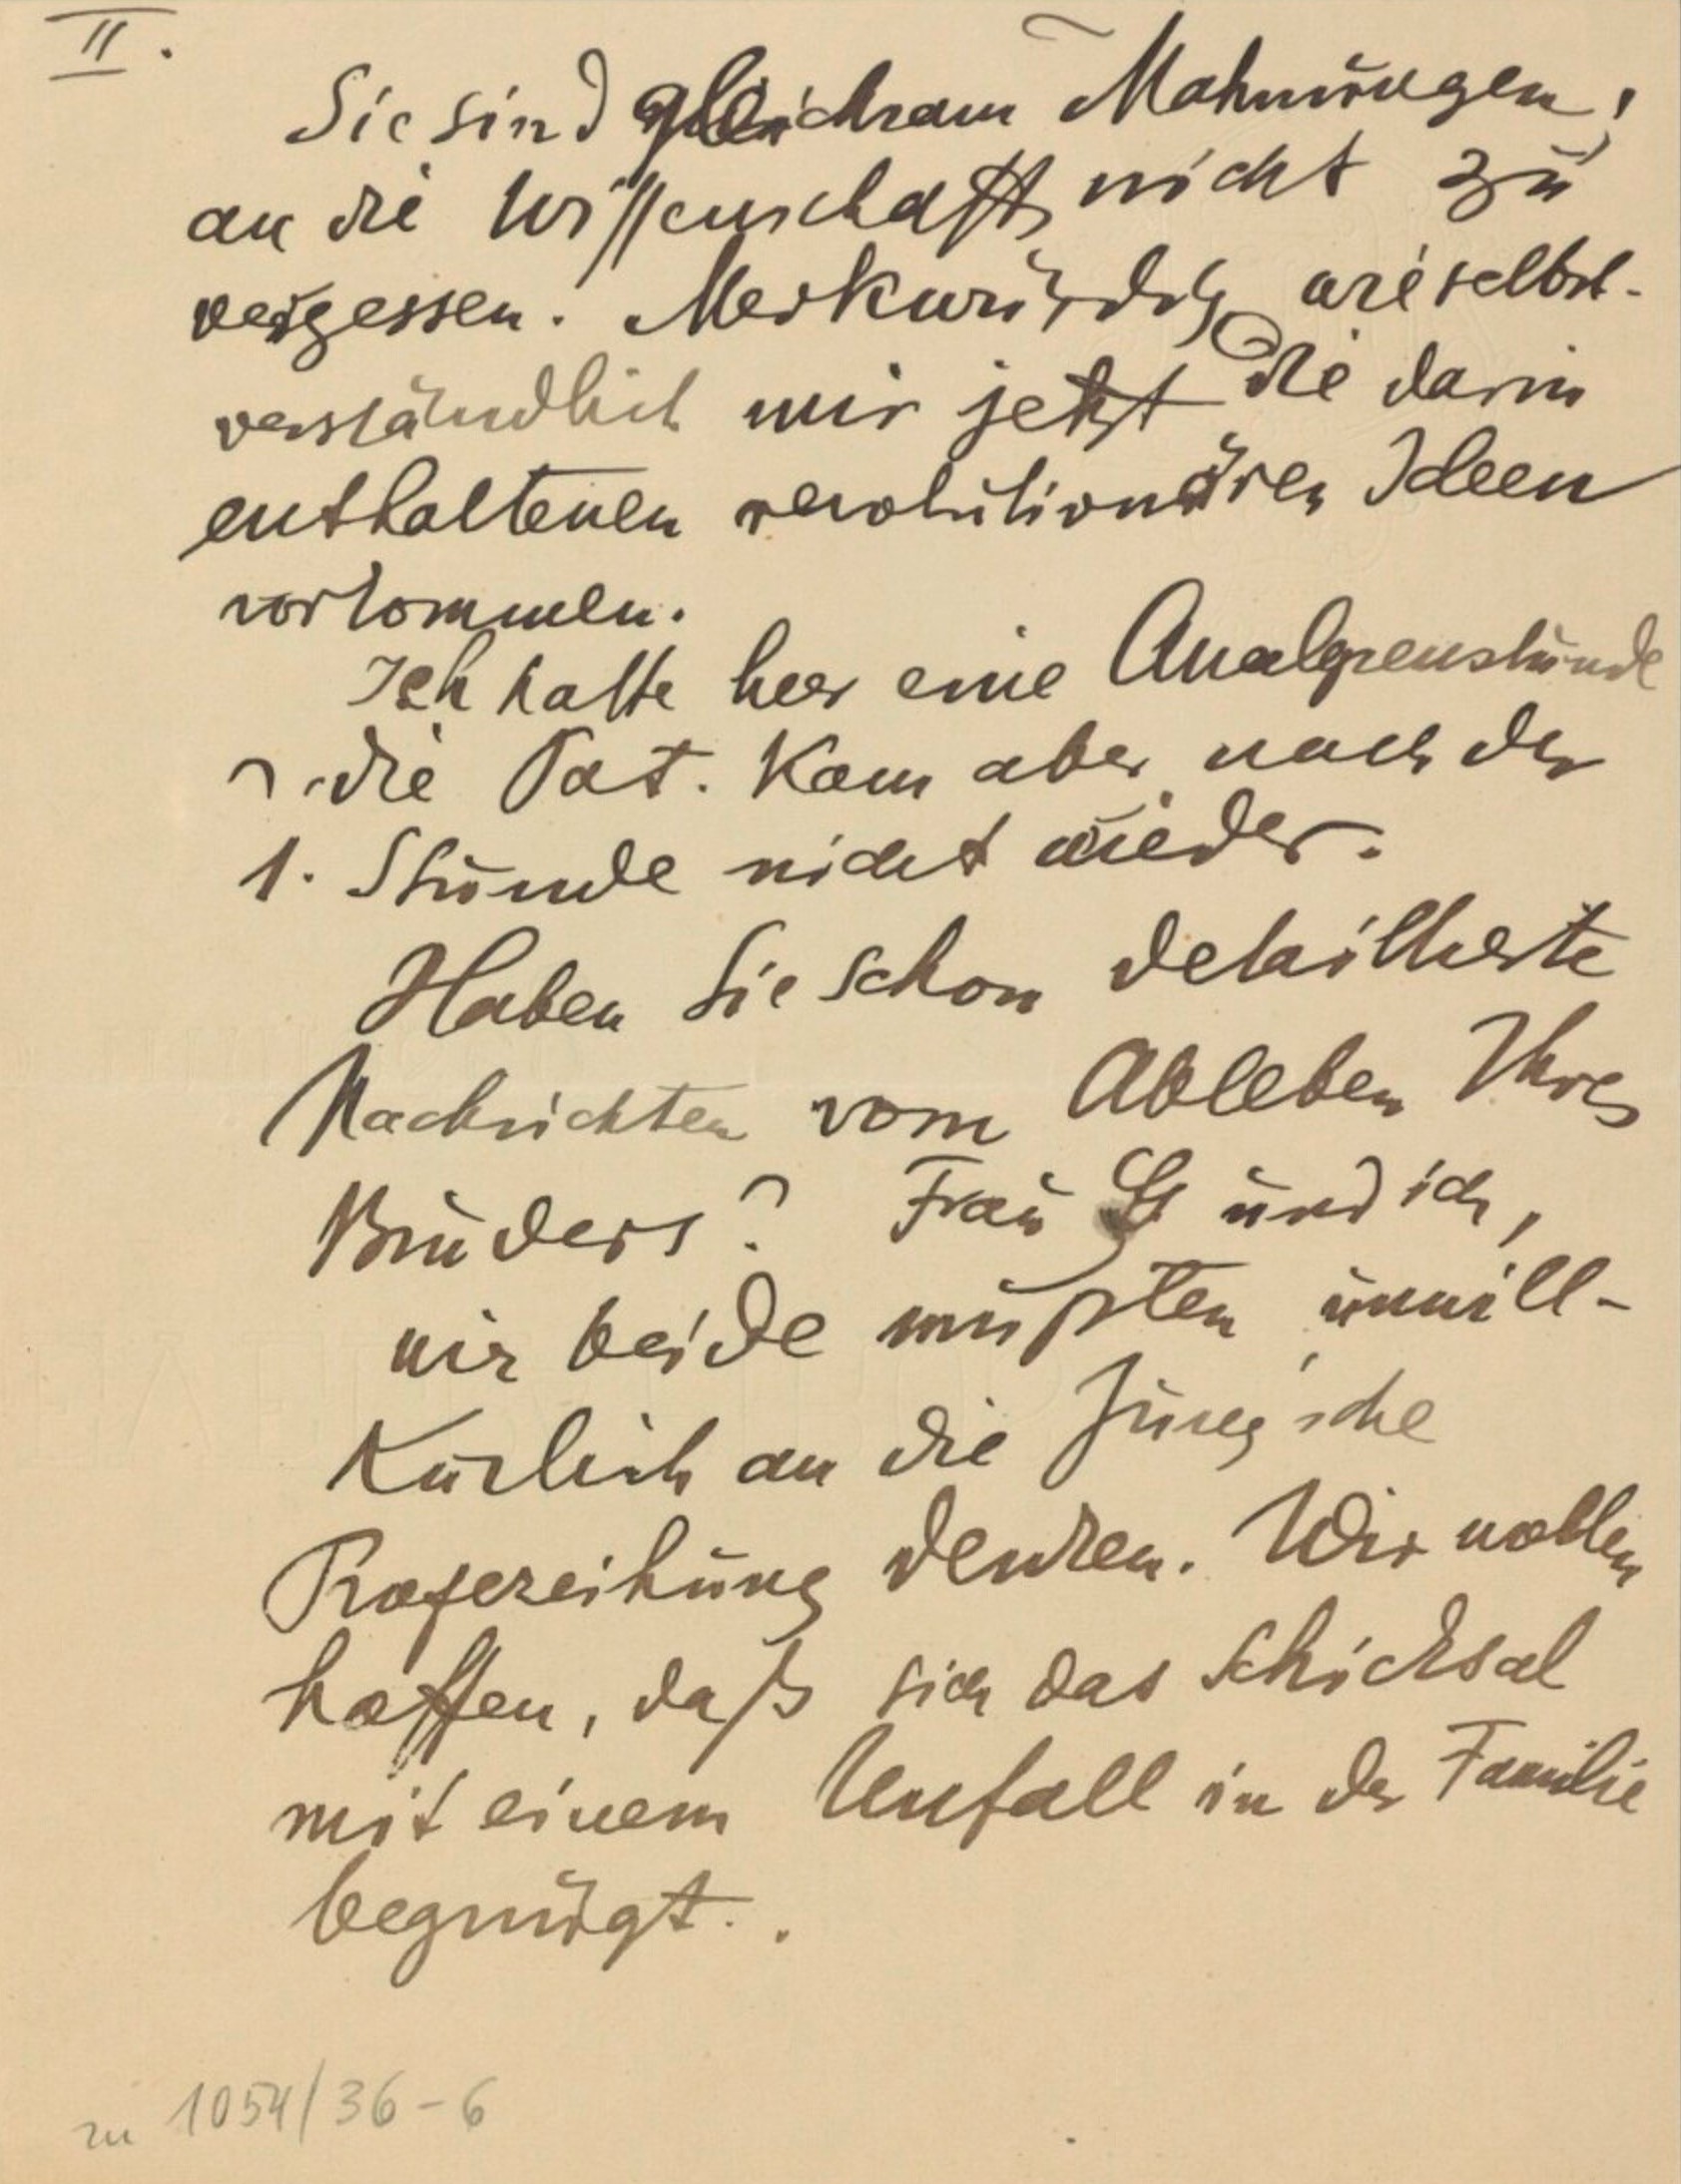 II.
Sie sind gleichsam Mahnungen,
an die Wissenschaft nicht zu
vergessen. Merkwürdig wie selbst-
verständlich mir jetzt die darin
enthaltenen revolutionären Ideen
vorkommen.
Ich hatte hier eine Analysenstunde
die Pat. kam aber nach der
1. Stunde nicht wieder.
Haben Sie schon detaillierte
Nachrichten vom Ableben Ihres
Bruders? Frau G und ich,
wir beide mußten unwill-
kürlich an die Jung'sche
Profezeihung denken. Wir wollen
hoffen, daß sich das Schicksal
mit einem Unfall in der Familie
begnügt.
zu 1054/36-6